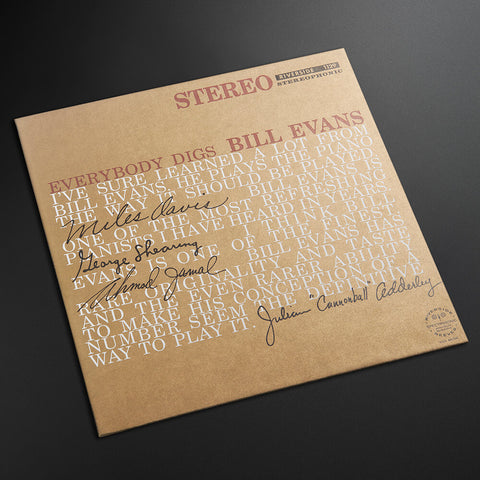 STEREO
RIVERSIDE 1129
STEREOPHONIC
EVERYBODY DIGS BILL EVANS
I'VE SURE LEARNED A LOT FROM
BILL EVANS. HE PLAYS THE PIANO
THE WAY IT SHOULD BE PLAYED
Miles Davis
ONE OF THE MOST REFRESHING
PIANISTS I HAVE HEARD IN YEARS
George Shearing
I THINK BILL
EVANS IS ONE OF THE
Ahmad Jamal
BILL EVANS HAS
RARE ORIGINALITY AND TASTE
AND THE EVEN RARER ABILITY
TO MAKE HIS CONCEPTION OF A
NUMBER SEEM THE DEFINITIVE
WAY TO PLAY IT.
Julian "Cannonball" Adderley
RIVERSIDE